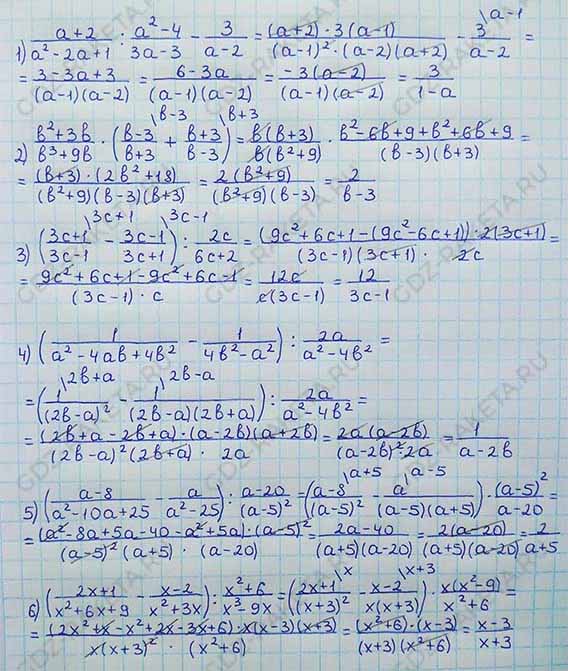 1) (a+2)/(a²-2a+1) : (a²-4)/(3a-3) - 3/(a-2) = ((a+2)·3(a-1))/((a-1)²·(a-2)(a+2)) - 3\a-1/(a-2) =
= (3-3a+3)/((a-1)(a-2)) = (6-3a)/((a-1)(a-2)) = (-3(a-2))/((a-1)(a-2)) = 3/(1-a)
2) (b²+3b)/(b³+9b) · ((b-3)\b-3/(b+3) + (b+3)\b+3/(b-3)) = (b(b+3))/(b(b²+9)) · (b²-6b+9+b²+6b+9)/((b-3)(b+3)) =
= ((b+3)·(2b²+18))/((b²+9)(b-3)(b+3)) = (2(b²+9))/((b²+9)(b-3)) = 2/(b-3)
3) ((3c+1)\3c+1/(3c-1) - (3c-1)\3c-1/(3c+1)) : 2c/(6c+2) = ((9c²+6c+1-(9c²-6c+1))·2(3c+1))/((3c-1)(3c+1)·2c) =
= (9c²+6c+1-9c²+6c-1)/((3c-1)·c) = 12c/(c(3c-1)) = 12/(3c-1)
4) (1/(a²-4ab+4b²) - 1/(4b²-a²)) : 2a/(a²-4b²) =
= (1\2b+a/(2b-a)² - 1\2b-a/((2b-a)(2b+a))) : 2a/(a²-4b²) =
= ((2b+a-2b+a)·(a-2b)(a+2b))/((2b-a)²(2b+a)·2a) = (2a(a-2b))/((a-2b)²·2a) = 1/(a-2b)
5) ((a-8)/(a²-10a+25) - a/(a²-25)) : (a-20)/(a-5)² = ((a-8)\a+5/(a-5)² - a\a-5/((a-5)(a+5))) · (a-5)²/(a-20) =
= ((a²-8a+5a-40-a²+5a)·(a-5)²)/((a-5)²(a+5)·(a-20)) = (2a-40)/((a+5)(a-20)) = (2(a-20))/((a+5)(a-20)) = 2/(a+5)
6) ((2x+1)/(x²+6x+9) - (x-2)/(x²+3x)) : (x²+6)/(x³-9x) = ((2x+1)\x/(x+3)² - (x-2)\x+3/(x(x+3))) · (x(x²-9))/(x²+6) =
= ((2x²+x-x²+2x-3x+6)·x(x-3)(x+3))/(x(x+3)²·(x²+6)) = ((x²+6)·(x-3))/((x+3)(x²+6)) = (x-3)/(x+3)
GDZ-RAKETA.RU